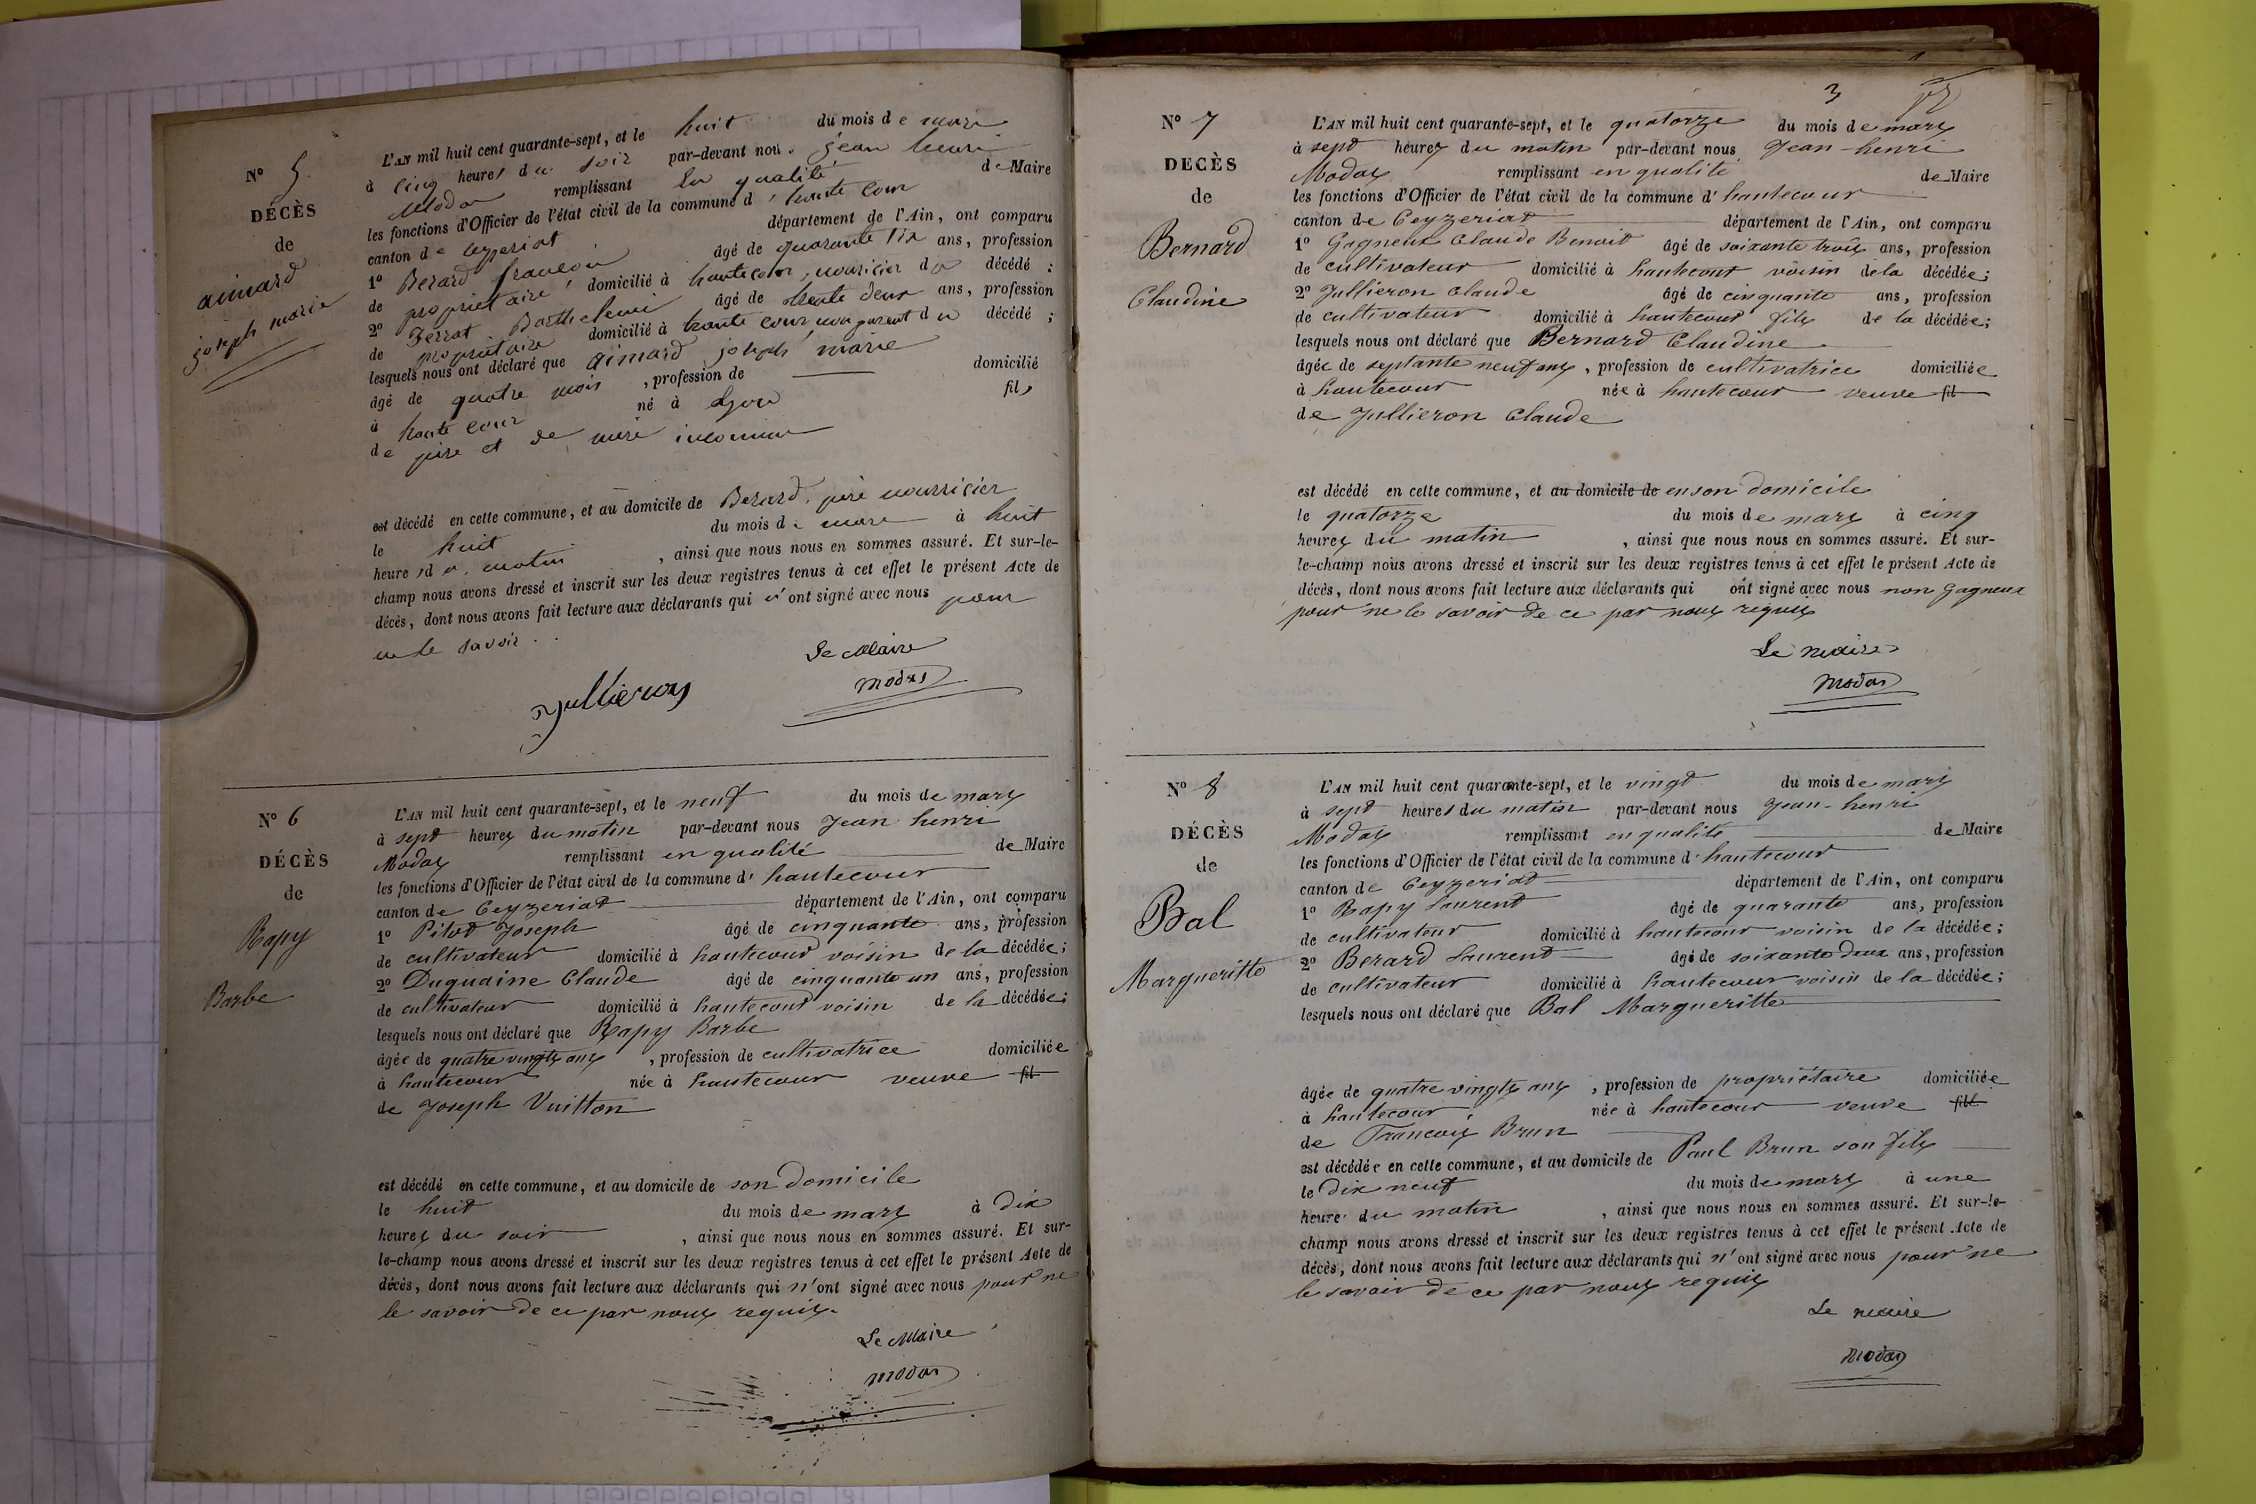 N° 5
DÉCÈS
de
aimard
joseph marie
L'AN mil huit cent quarante-sept, et le huit du mois de mars
à cinq heures du soir par-devant nous jean henri
Modas remplissant en qualité de Maire
les fonctions d'Officier de l'état civil de la commune d'haute cour
canton de ceyzeriat département de l'Ain, ont comparu
1° Berard françois âgé de quarante six ans, profession
de propriétaire domicilié à hautecour, nouricier du décédé ;
2° Ferrat Barthelemi âgé de trente deux ans, profession
de propriétaire domicilié à haute cour non parent du décédé ;
lesquels nous ont déclaré que aimard joseph marie
âgé de quatre mois , profession de domicilié
à haute cour né à Lyon fils
de père et de mère inconnus
est décédé en cette commune, et au domicile de Berard, père nourricier
le huit du mois de mars à huit
heures du matin , ainsi que nous nous en sommes assuré. Et sur-le-
champ nous avons dressé et inscrit sur les deux registres tenus à cet effet le présent Acte de
décès, dont nous avons fait lecture aux déclarants qui n'ont signé avec nous pour
ne le savoir . .
Le Maire
Jullieron modas
N° 6
DÉCÈS
de
Rapy
Barbe
L'AN mil huit cent quarante-sept, et le neuf du mois de mars
à sept heures du matin par-devant nous Jean henri
Modas remplissant en qualité de Maire
les fonctions d'Officier de l'état civil de la commune d'hautecour
canton de Ceyzeriat département de l'Ain, ont comparu
1° Pitod Joseph âgé de cinquante ans, profession
de cultivateur domicilié à hautecour voisin de la décédée ;
2° Duquaine Claude âgé de cinquante un ans, profession
de cultivateur domicilié à hautecour voisin de la décédée ;
lesquels nous ont déclaré que Rapy Barbe
âgée de quatre vingts ans , profession de cultivatrice domiciliée
à hautecour née à hautecour veuve fil
de Joseph Vuitton
est décédé en cette commune, et au domicile de son domicile
le huit du mois de mars à dix
heures du soir , ainsi que nous nous en sommes assuré. Et sur-
le-champ nous avons dressé et inscrit sur les deux registres tenus à cet effet le présent Acte de
décès, dont nous avons fait lecture aux déclarants qui n'ont signé avec nous pour ne
le savoir de ce par nous requis.
Le Maire
modas
3
N° 7
DECÈS
de
Bernard
Claudine
L'AN mil huit cent quarante-sept, et le quatorze du mois de mars
à sept heures du matin par-devant nous Jean-henri
Modas remplissant en qualité de Maire
les fonctions d'Officier de l'état civil de la commune d'hautecour
canton de Ceyzeriat département de l'Ain, ont comparu
1° Gagneux Claude Benoit âgé de soixante trois ans, profession
de cultivateur domicilié à hautecour voisin de la décédée ;
2° Jullieron Claude âgé de cinquante ans, profession
de cultivateur domicilié à hautecour fils de la décédée ;
lesquels nous ont déclaré que Bernard Claudine
âgée de septante neuf ans , profession de cultivatrice domiciliée
à hautecour née à hautecour veuve fil
de Jullieron Claude
est décédé en cette commune, et au domicile de en son domicile
le quatorze du mois de mars à cinq
heures du matin , ainsi que nous nous en sommes assuré. Et sur-
le-champ nous avons dressé et inscrit sur les deux registres tenus à cet effet le présent Acte de
décès, dont nous avons fait lecture aux déclarants qui ont signé avec nous non Gagneux
pour ne le savoir de ce par nous requis
Le maire
modas
N° 8
DÉCÈS
de
Bal
Margueritte
L'AN mil huit cent quarante-sept, et le vingt du mois de mars
à sept heures du matin par-devant nous Jean-henri
Modas remplissant en qualité de Maire
les fonctions d'Officier de l'état civil de la commune d'hautecour
canton de Ceyzeriat département de l'Ain, ont comparu
1° Rapy Laurent âgé de quarante ans, profession
de cultivateur domicilié à hautecour voisin de la décédée ;
2° Berard Laurent âgé de soixante deux ans, profession
de cultivateur domicilié à hautecour voisin de la décédée ;
lesquels nous ont déclaré que Bal Margueritte
âgée de quatre vingts ans , profession de propriétaire domiciliée
à hautecour née à hautecour veuve fil
de Francois Brun
est décédée en cette commune, et au domicile de Paul Brun son fils
le dix neuf du mois de mars à une
heure du matin , ainsi que nous nous en sommes assuré. Et sur-le-
champ nous avons dressé et inscrit sur les deux registres tenus à cet effet le présent Acte de
décès, dont nous avons fait lecture aux déclarants qui n'ont signé avec nous pour ne
le savoir de ce par nous requis
Le maire
modas